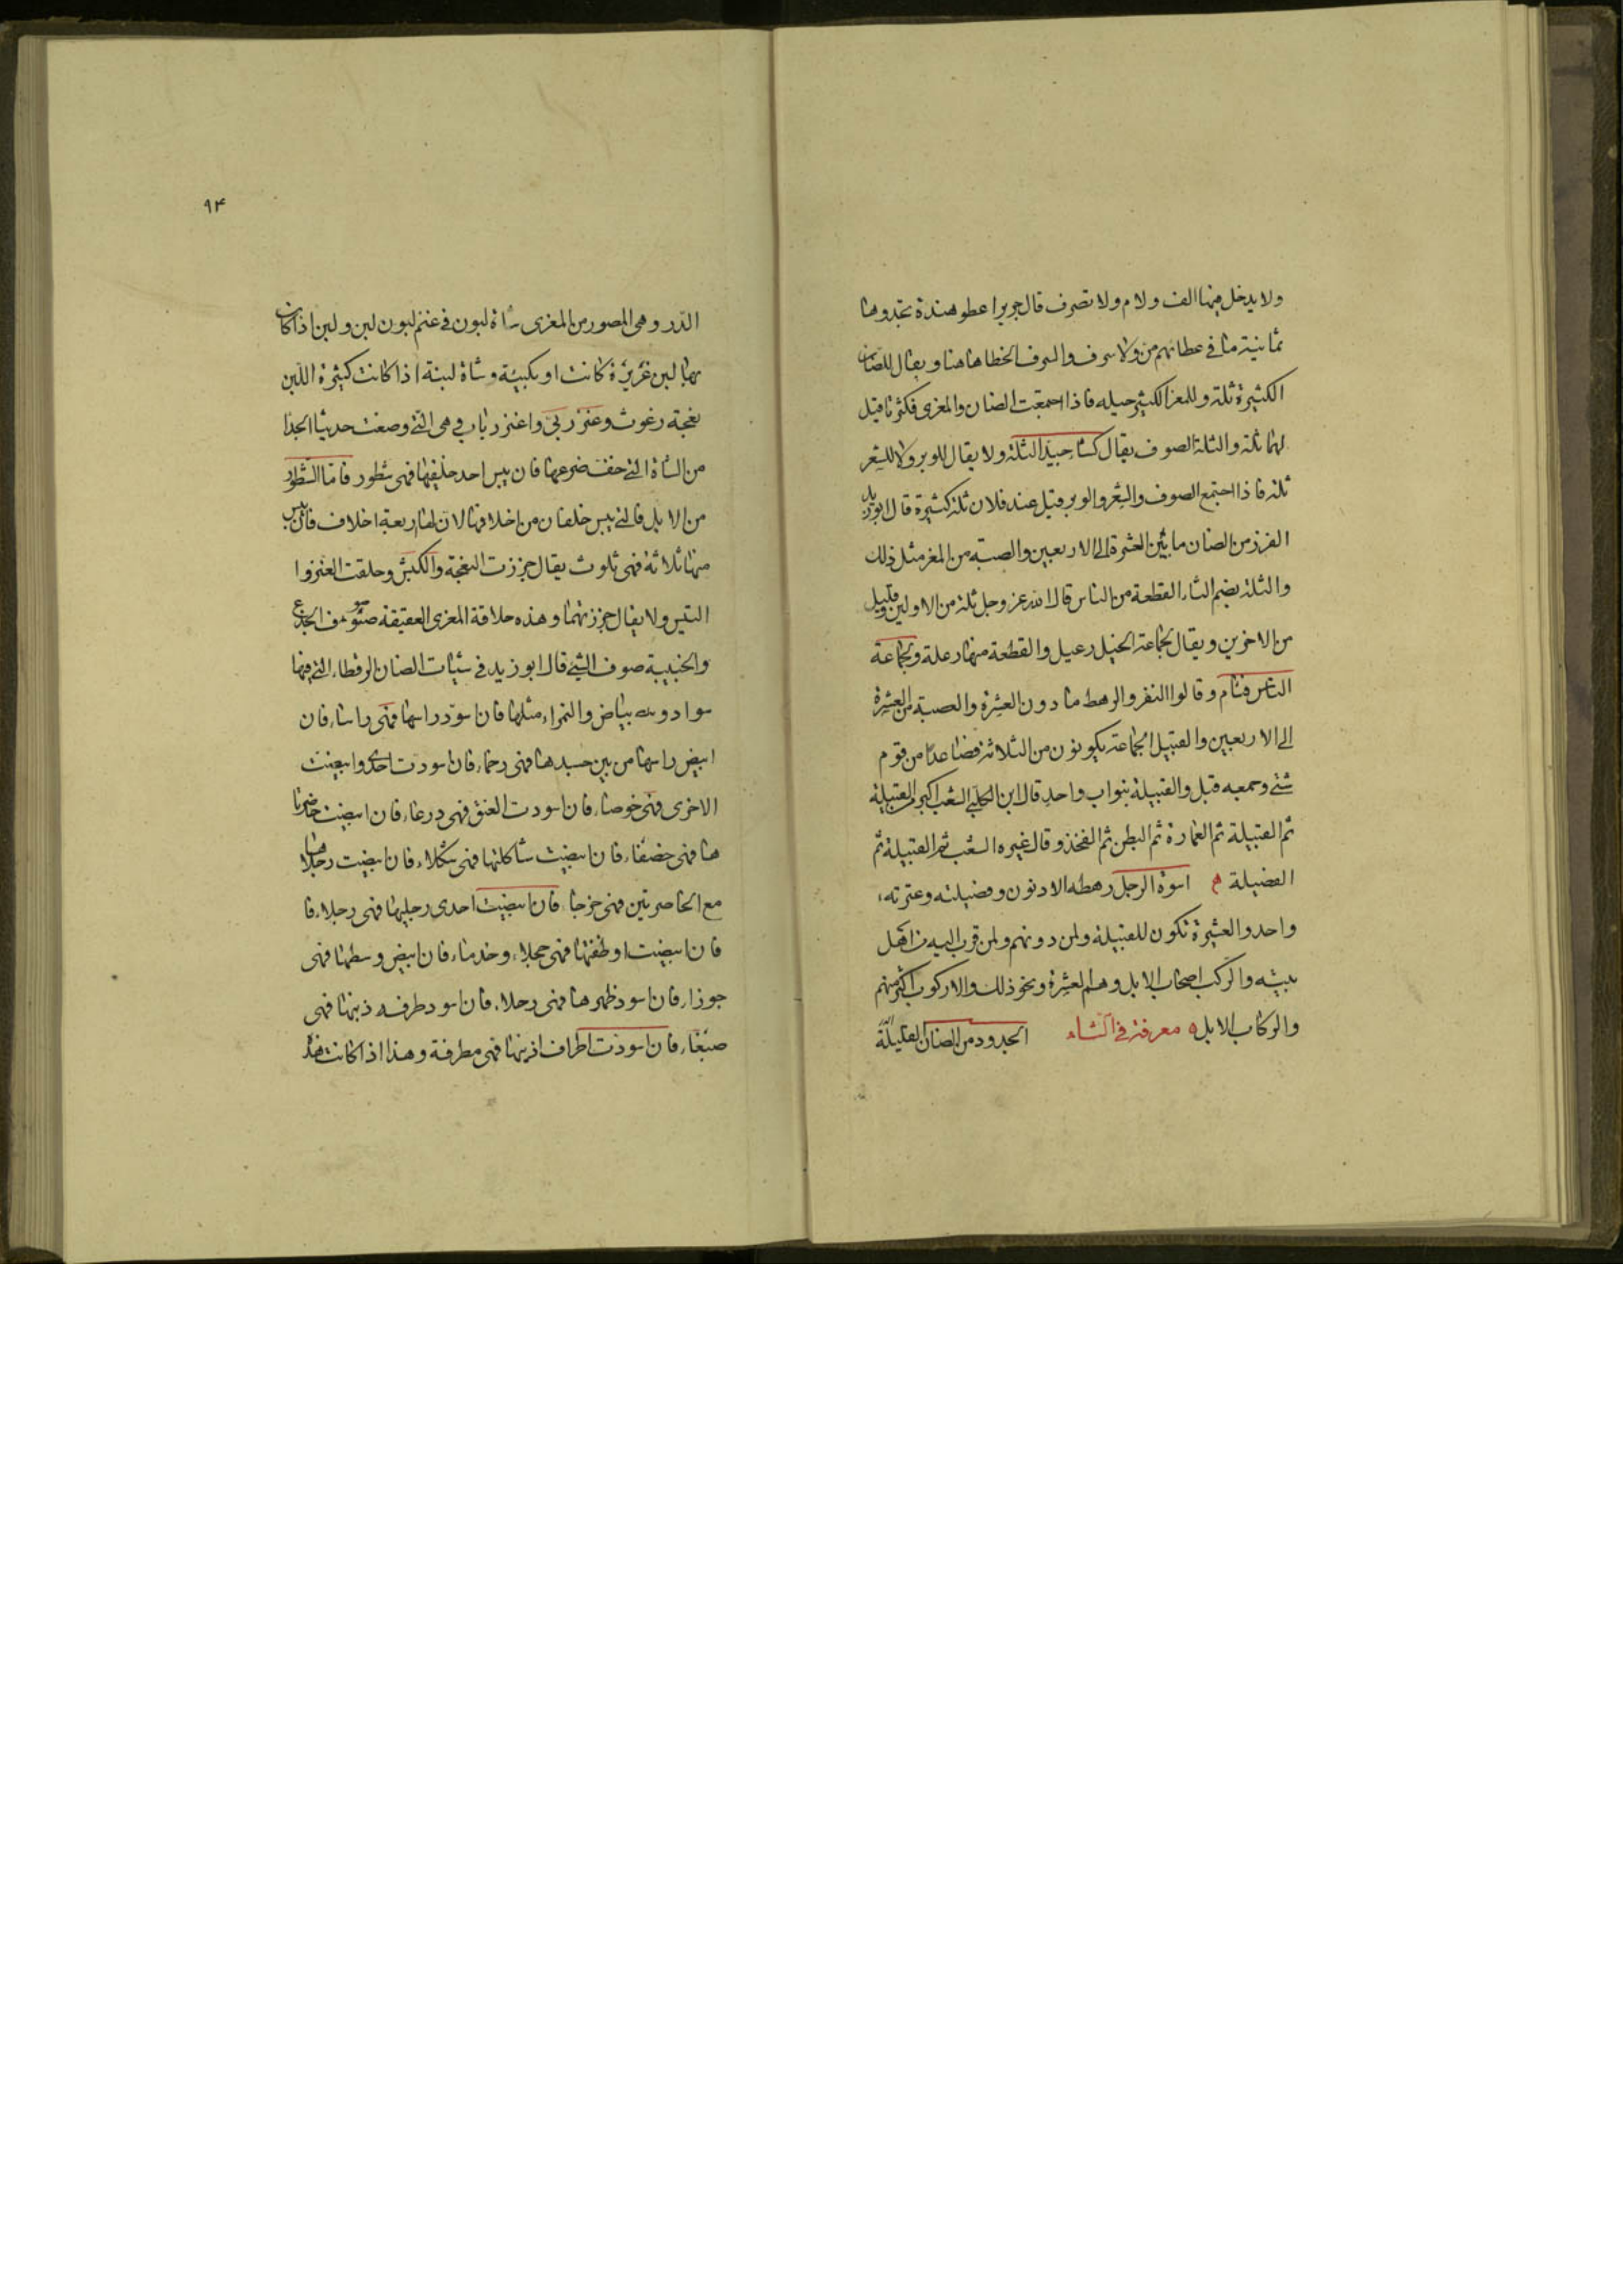 ولا يدخل فيها الف ولام ولا تصرف قال جرير اعطو هندة تحدوها
ثمانية ما في عطائهم من ولا سرف والسرف الخطا هاهنا ويقال للضان
الكثيرة ثلة وللمعز الكثير حيله فاذا اجتمعت الضان والمعزى فكثرتا قيل
لهما ثلة والثلة الصوف يقال كساء جيد الثلة ولا يقال للوبر ولا للشعر
ثلة فاذا اجتمع الصوف والشعر والوبر قيل عند فلان ثلة كثيرة قال ابوزيد
الفرز من الضان ما بين العشرة الى الاربعين والصبة من المعز مثل ذلك
والثلة بضم الثاء القطعة من الناس قال الله عز وجل ثلة من الاولين وقليل
من الاخرين ويقال لجماعة الخيل رعيل والقطعة منها رعلة ولجماعة
الناس فئام وقالوا النفر والرهط ما دون العشرة والعصبة من العشرة
الى الاربعين والقبيل الجماعة يكونون من الثلاثة فصاعدا من قوم
شتى وجمعه قبل والقبيلة بنواب واحد قال ابن الكلبي الشعب اكبر من القبيلة
ثم القبيلة ثم العمارة ثم البطن ثم الفخذ وقال غيره الشعب ثم القبيلة ثم
الفضيلة اسوة الرجل رهطه الادنون وفضيلته وعترته
واحد والعشيرة تكون للقبيلة ولمن دونهم ولمن قرب اليه من اهل
بيته والركب اصحاب الابل وهم العشرة ونحو ذلك والاركوب اكثر منهم
والركاب الابل ٥ معرفة في الشاء الجدود من الضان القليلة
٩٤
الدر وهى المصور من المعزى شاة لبون في غنم لبون لبن ولبن اذا كان
بها لبن غزيرة كانت او بكيئة وشاة لبنة اذا كانت كثيرة اللبن
نعجة رغوث وعنز ربى واعنز رباب وهى التى وضعت حديثا الجدا
من الشاة التى خفت ضرعها فان يبس احد خلفيها فهى شطور فاما الشطور
من الابل فالتى يبس خلفان من اخلافها لان لها اربعة اخلاف فان يبس
منها ثلاثة فهى ثلوث يقال جززت النعجة والكبش وحلقت العنز وا
التيس ولا يقال جززتهما وهذه حلاقة المعزى العقيقة صوف الجذع
والخبيبة صوف الثني قال ابو زيد في شيات الضان الرقطاء التى فيها
سواد وبياض والنمراء مثلها فان اسود راسها فهى راساء فان
ابيض راسها من بين جسدها فهى رخماء فان اسودت احدى وابيضت
الاخرى فهى خوصاء فان اسودت العنق فهى درعاء فان ابيضت خاصرتا
ها فهى خصفاء فان ابيضت شاكلتها فهى شكلاء فان ابيضت رجلاها
مع الخاصرتين فهى خرجا فان ابيضت احدى رجليها فهى رجلاء فا
فان ابيضت اوظفتها فهى حجلاء وخدماء فان ابيض وسطها فهى
جوزاء فان اسود ظهرها فهى رحلاء فان اسود طرف ذنبها فهى
صبغاء فان اسودت اطراف اذنيها فهى مطرفة وهذا اذا كانت هذه